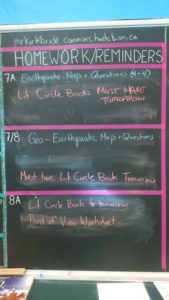 mrkirkbride.commons.hwdsb.on.ca
HOMEWORK/REMINDERS
7A Earthquake Map + Questions (1-4)
Lit Circle Books MUST HAVE
TOMORROW
7/8 Geo - Earthquake Map + Questions
Must have Lit Circle Book Tomorrow
8A Lit Circle Books for tomorrow
Point of View Worksheet